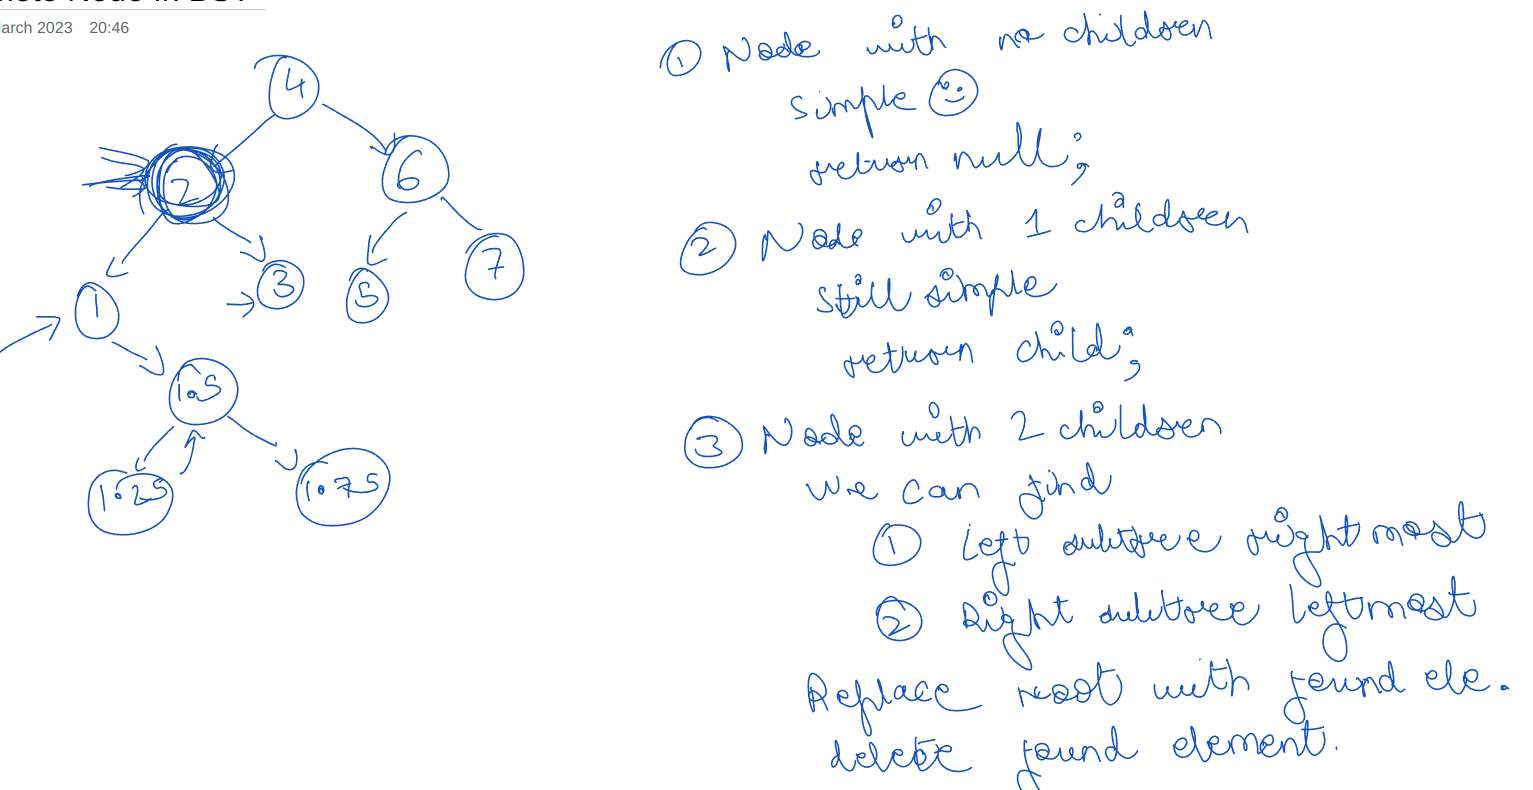 March 2023 20:46
4
2
6
1
3
5
7
1.5
1.25
1.75
① Node with no children
simple
return null;
② Node with 1 children
still simple
return child;
③ Node with 2 children
we can find
① Left subtree rightmost
② Right subtree leftmost
Replace root with found ele.
delete found element.